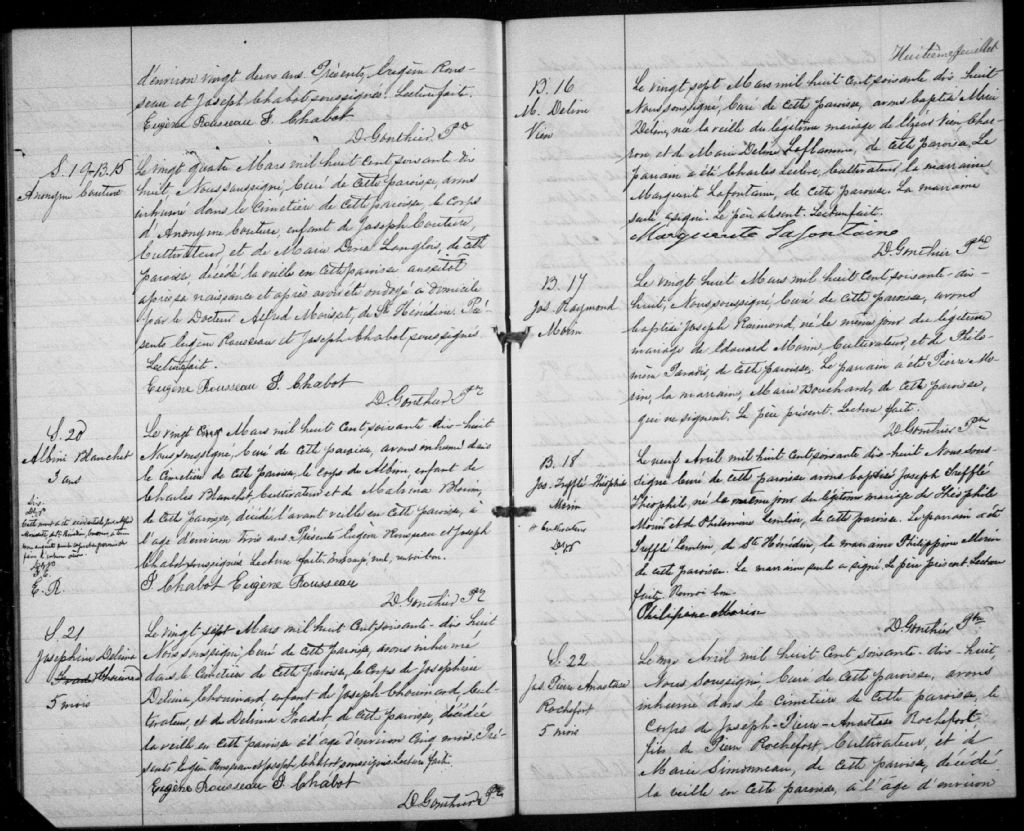 d'environ vingt deux ans. Présents, Eugène Rous-
seau et Joseph Chabot soussignés. Lecture faite.
Eugène Rousseau J. Chabot
D. Gonthier Ptre
S. 19-B. 15
Anonyme Couture
Le vingt quatre Mars mil huit Cent soixante dix
huit, Nous soussigné, Curé de Cette paroisse, avons
inhumé dans le Cimetière de Cette paroisse, le corps
d'Anonyme Couture, enfant de Joseph Couture,
Cultivateur, et de Marie Langlois, de cette
paroisse, décédé la veille en Cette paroisse aussitôt
après sa naissance et après avoir été ondoyé à domicile
par le Docteur Alfred Morisset, de Ste Hénédine. Pré-
sents Eugène Rousseau et Joseph Chabot soussignés.
Lecture faite.
Eugène Rousseau J. Chabot
D. Gonthier Ptre
S. 20
Albini Blanchet
3 ans
Le vingt Cinq Mars mil huit Cent soixante-dix-huit
Nous soussigné, Curé de Cette paroisse, avons inhumé dans
le Cimetière de Cette paroisse, le corps de Albini, enfant de
Charles Blanchet, Cultivateur et de Malvina
de Cette paroisse, décédé l'avant veille en Cette paroisse, à
l'age d'environ trois ans. Présents Eugène Rousseau et Joseph
Chabot soussignés Lecture faite. nul, renvoi bon.
J. Chabot Eugène Rousseau
D. Gonthier Ptre
E. R.
S. 21
Josephine Delima
Chouinard
5 mois
Le vingt sept Mars mil huit Cent soixante-dix huit
Nous soussigné, Curé de Cette paroisse, avons inhumé
dans le Cimetière de Cette paroisse, le Corps de Josephine
Delima Chouinard, enfant de Joseph Chouinard, Cul-
tivateur, et de Delima Nadot, de Cette paroisse, décédée
la veille en Cette paroisse à l'age d'environ Cinq mois. Pré-
sents Eugène Rousseau et Joseph Chabot soussignés Lecture faite.
Eugène Rousseau J. Chabot
D. Gonthier Ptre
Huitième feuillet
B. 16
M. Delini
Vien
Le vingt sept Mars mil huit Cent soixante dix-huit
Nous soussigné, Curé de Cette paroisse, avons baptisé Marie
Délini, née la veille du légitime mariage de Elzéar Vien, Char-
ron, et de Marie Delini Laflamme, de Cette paroisse. Le
parrain a été Charles Leclerc, Cultivateur, la marraine
Marguerite Lafontaine, de Cette paroisse. La marraine
seule a signé. Le père absent. Lecture faite.
Marguerite Lafontaine
D. Gonthier Ptre
B. 17
Jos. Raymond
Morin
Le vingt huit Mars mil huit Cent soixante-dix-
huit, Nous soussigné, Curé de Cette paroisse, avons
baptisé Joseph Raimond, né le même jour du légitime
mariage de Edouard Morin, Cultivateur, et de Philo-
mène Paradis, de Cette paroisse. Le parrain a été Pierre Mo-
rin, la marraine, Marie Bouchard, de Cette paroisse,
qui ne signent. Le père présent. Lecture faite.
D. Gonthier Ptre
B. 18
Jos. Trefflé Théophile
Morin
+ Cultivateur
Le neuf Avril mil huit Cent soixante dix-huit Nous sous-
signé Curé de cette paroisse avons baptisé Joseph Trefflé
Théophile, né le même jour du légitime mariage de Théophile
Morin + et de Philomène Lemelin, de Cette paroisse. Le parrain a été
Trefflé Lemelin, de Ste Hénédine, la marraine Philippine Morin
de Cette paroisse. La marraine seule a signé. Le père présent. Lecture
faite. Renvoi bon
Philipine Morin
D. Gonthier Ptre
S. 22
Jos. Pierre Anastase
Rochefort
5 mois
Le Avril mil huit Cent soixante-dix-huit
Nous Soussigné Curé de Cette paroisse, avons
inhumé dans le cimetière de Cette paroisse, le
Corps de Joseph-Pierre-Anastase Rochefort,
fils de Pierre Rochefort, Cultivateur, et de
Marie Simonneau, de Cette paroisse, décédé
la veille en Cette paroisse, à l'âge d'environ